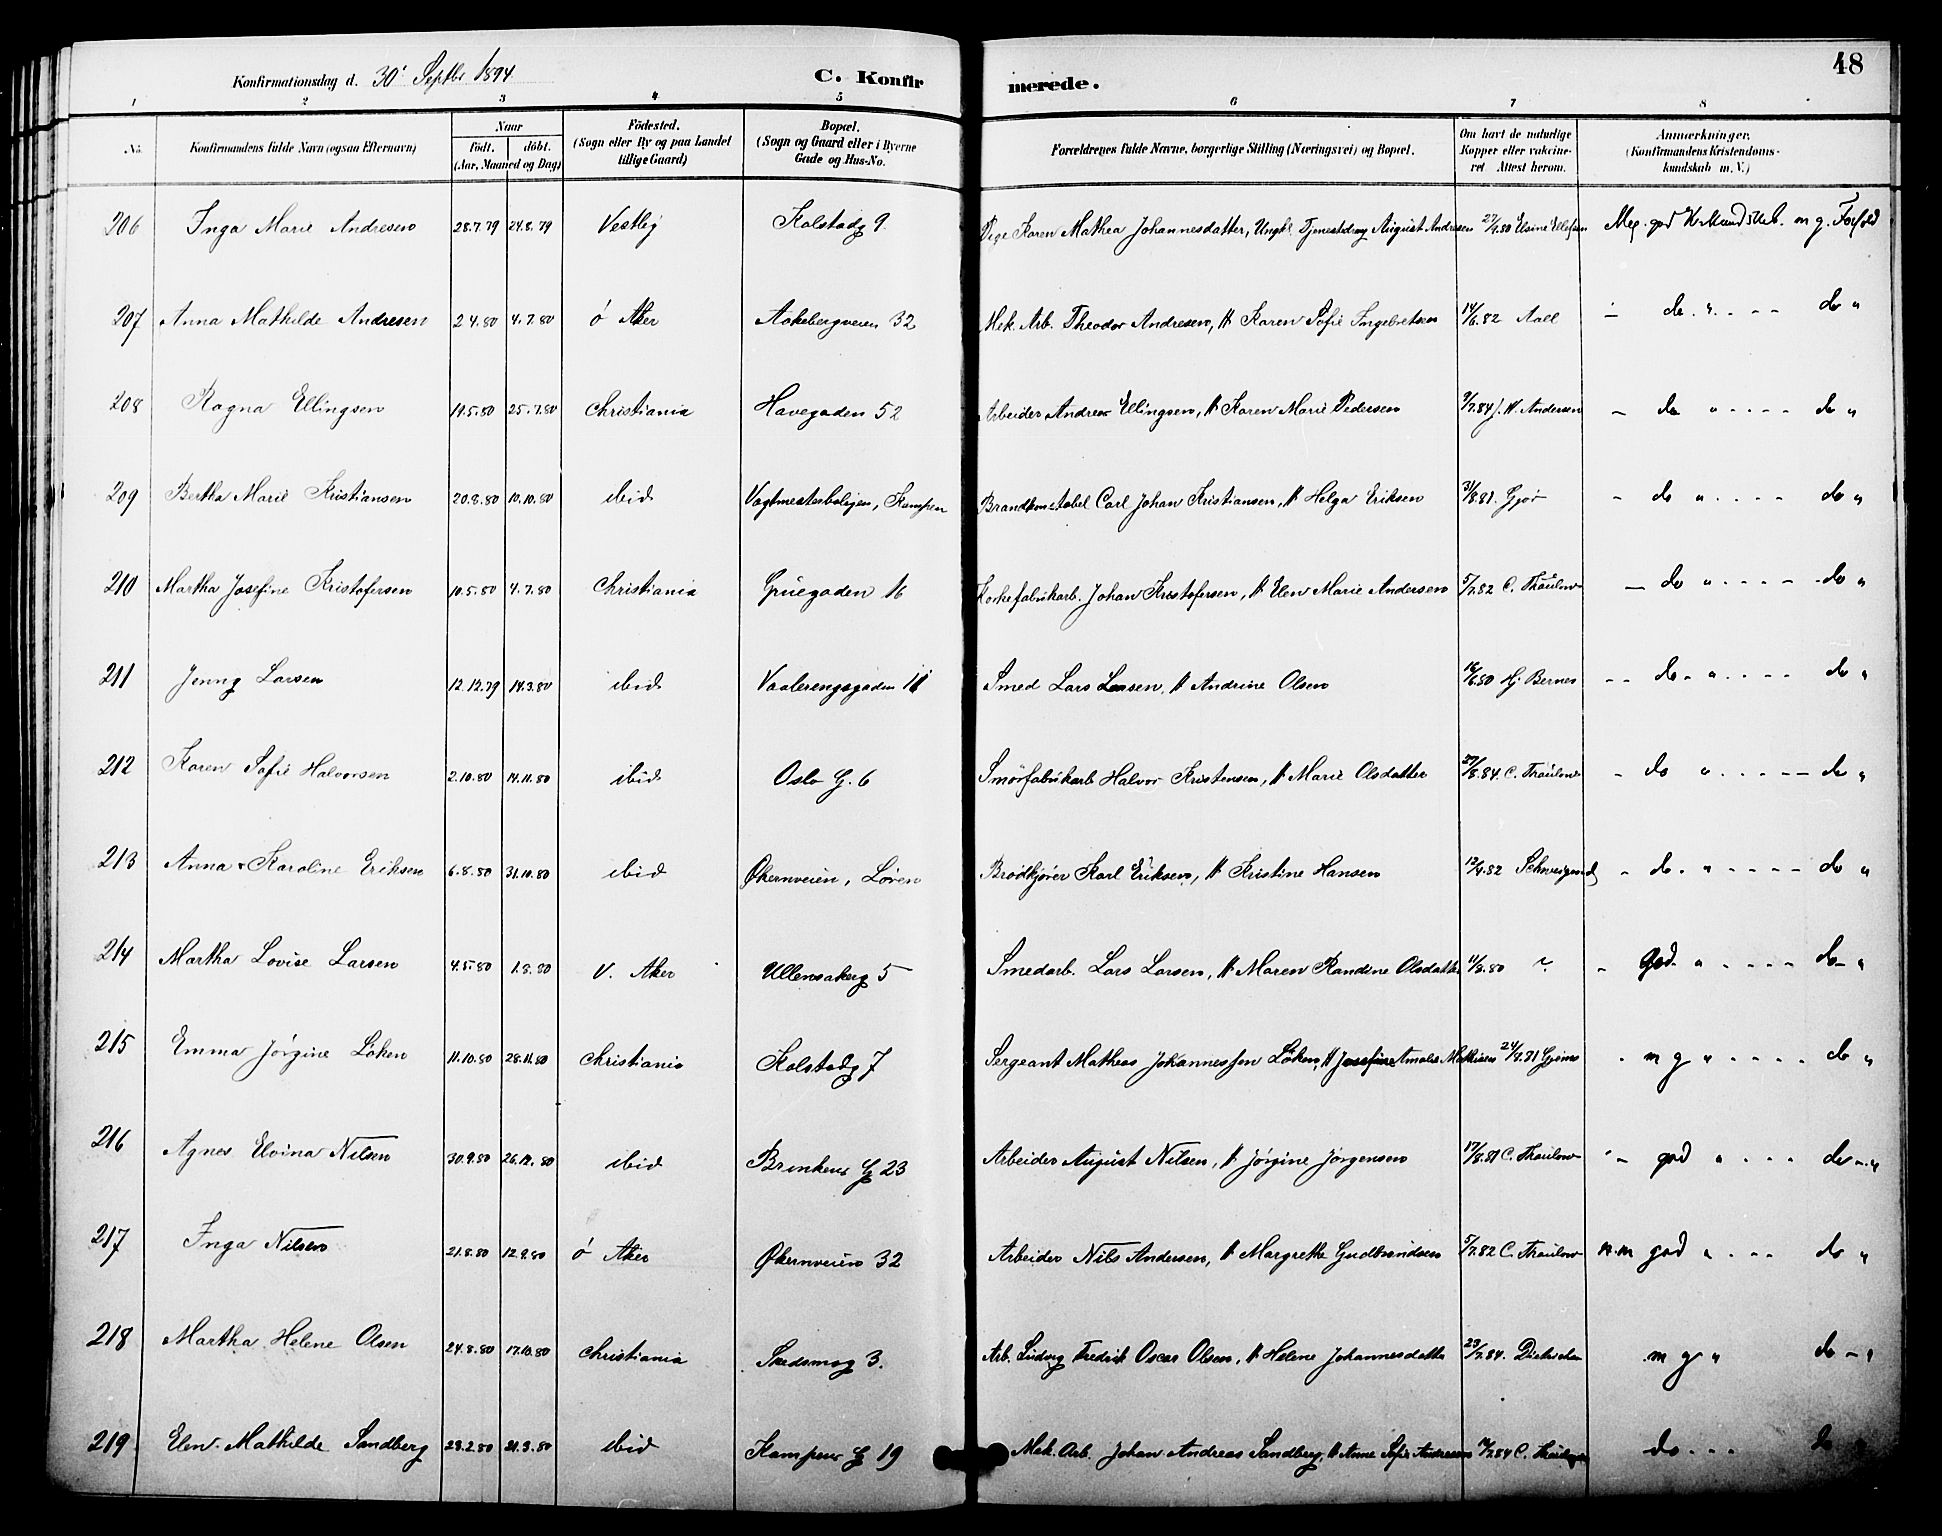 48
Konfirmationsdag d. 30' Septbr 1894 C. Konfirmerede.
1 2 3 4 5 6 7 8
No. Konfirmandens fulde Navn (ogsaa Efternavn) Naar födt. döbt. (Aar, Maaned og Dag) Födested. (Sogn eller By og paa Landet tillige Gaard) Bopæl. (Sogn og Gaard eller i Byerne Gade og Hus-No. Forældrenes fulde Navne, borgerlige Stilling (Næringsvei) og Bopæl. Om havt de naturlige Kopper eller vaccineret Attest herom. Anmærkninger. (Konfirmandens Kristendomskundskab m. V.)
206 Inga Marie Andresen 28.7.79 24.8.79 Vestby Kolstadg 9. Pige Karen Mathea Johannesdatter, Ungk. Tjenestedreng August Andresen 27/4.80 Elsine Ellefsen Meg. god Kundskab. m g. Forhold
207 Anna Mathilde Andresen 2 4.80 4.7.80 Ö Aker Aakebergveien 32 Mek. Arb. Theodor Andresen, H Karen Sofie Ingebretsen 14/6.82 Aall - do. " - - - - do "
208 Ragna Ellingsen 19.5.80 25.7.80 Christiania Havegaden 52 Arbeider Andreas Ellingsen, H Karen Marie Pedersen 9/7.84 J. N. Andersen - do " - - - - do "
209 Bertha Marie Kristiansen 20.8.80 10.10.80 ibid Vagtmesterboligen, Kampen Brandkonstabel Carl Johan Kristiansen, H Helga Eriksen 31/8.81. Gjör - do " - - - - do "
210 Martha Josefine Kristofersen 10.5.80 4.7.80 Christiania Grüegaden 16 Korkefabrikarb. Johan Kristofersen, H Elen Marie Andersen 5/7.82 C. Thaulow - do " - - - - do "
211 Jenny Larsen 12.12.79 14.3.80 ibid Vaalerengsgaden 11 Smed Lars Larsen, H Andrine Olsen 16/6.80 Hj. Bernes - - do - " - - - - do "
212 Karen Sofie Halvorsen 2.10.80 14.11.80 ibid Oslo G. 6 Smörfabrikarb Halvor Kristensen, H Marie Olsdatter 27/8.84. C. Thaulow - do " - - - - do "
213 Anna Karoline Eriksen 6.8.80 31.10.80 ibid Økernveien, Løren Brødkjører Karl Eriksen, H Kristine Hansen 12/4.82 Schweigaard - do. " - - - - do "
214 Martha Lovise Larsen 4.5.80 1.8.80 V. Aker Ullensakerg 5 Smedarb. Lars Larsen, H Maren Randine Olsdatter 11/8.80 - god. " - - - - do - "
215 Emma Jørgine Løken 11.10.80 28.11.80 Christiania Kolstadg 7 Sergeant Mathias Johannessen Løken, H Josefine Amalie Mathisen 24/4.81 - m g " - - - - do "
216 Agnes Elvina Nilsen 30.9.80 26.12.80 ibid Brinkens G 23 Arbeider August Nilsen, H Jørgine Jørgensen 17/8.81 C. Thaulow " - god " - - - - do - "
217 Inga Nilsen 21.8.80 12.9.80 Ö Aker Økernveien 32 Arbeider Nils Andersen, H Margrethe Gudbrandsen 5/7.82 C. Thaulow n.m god " - - - do "
218 Martha Helene Olsen 24.8.80 17.10.80 Christiania Skedsmog 3. Arb. Ludvig Fredrik Oscar Olsen, H Helene Johannesdatter 23/7.84. m g " do - "
219 Elen Mathilde Sandberg 23.2.80 21.3.80 ibid Kampens G 19 Mek. Arb. Johan Andreas Sandberg, H Anne Sofie Andresen 14/7.84 C. Thaulow do - - - do "